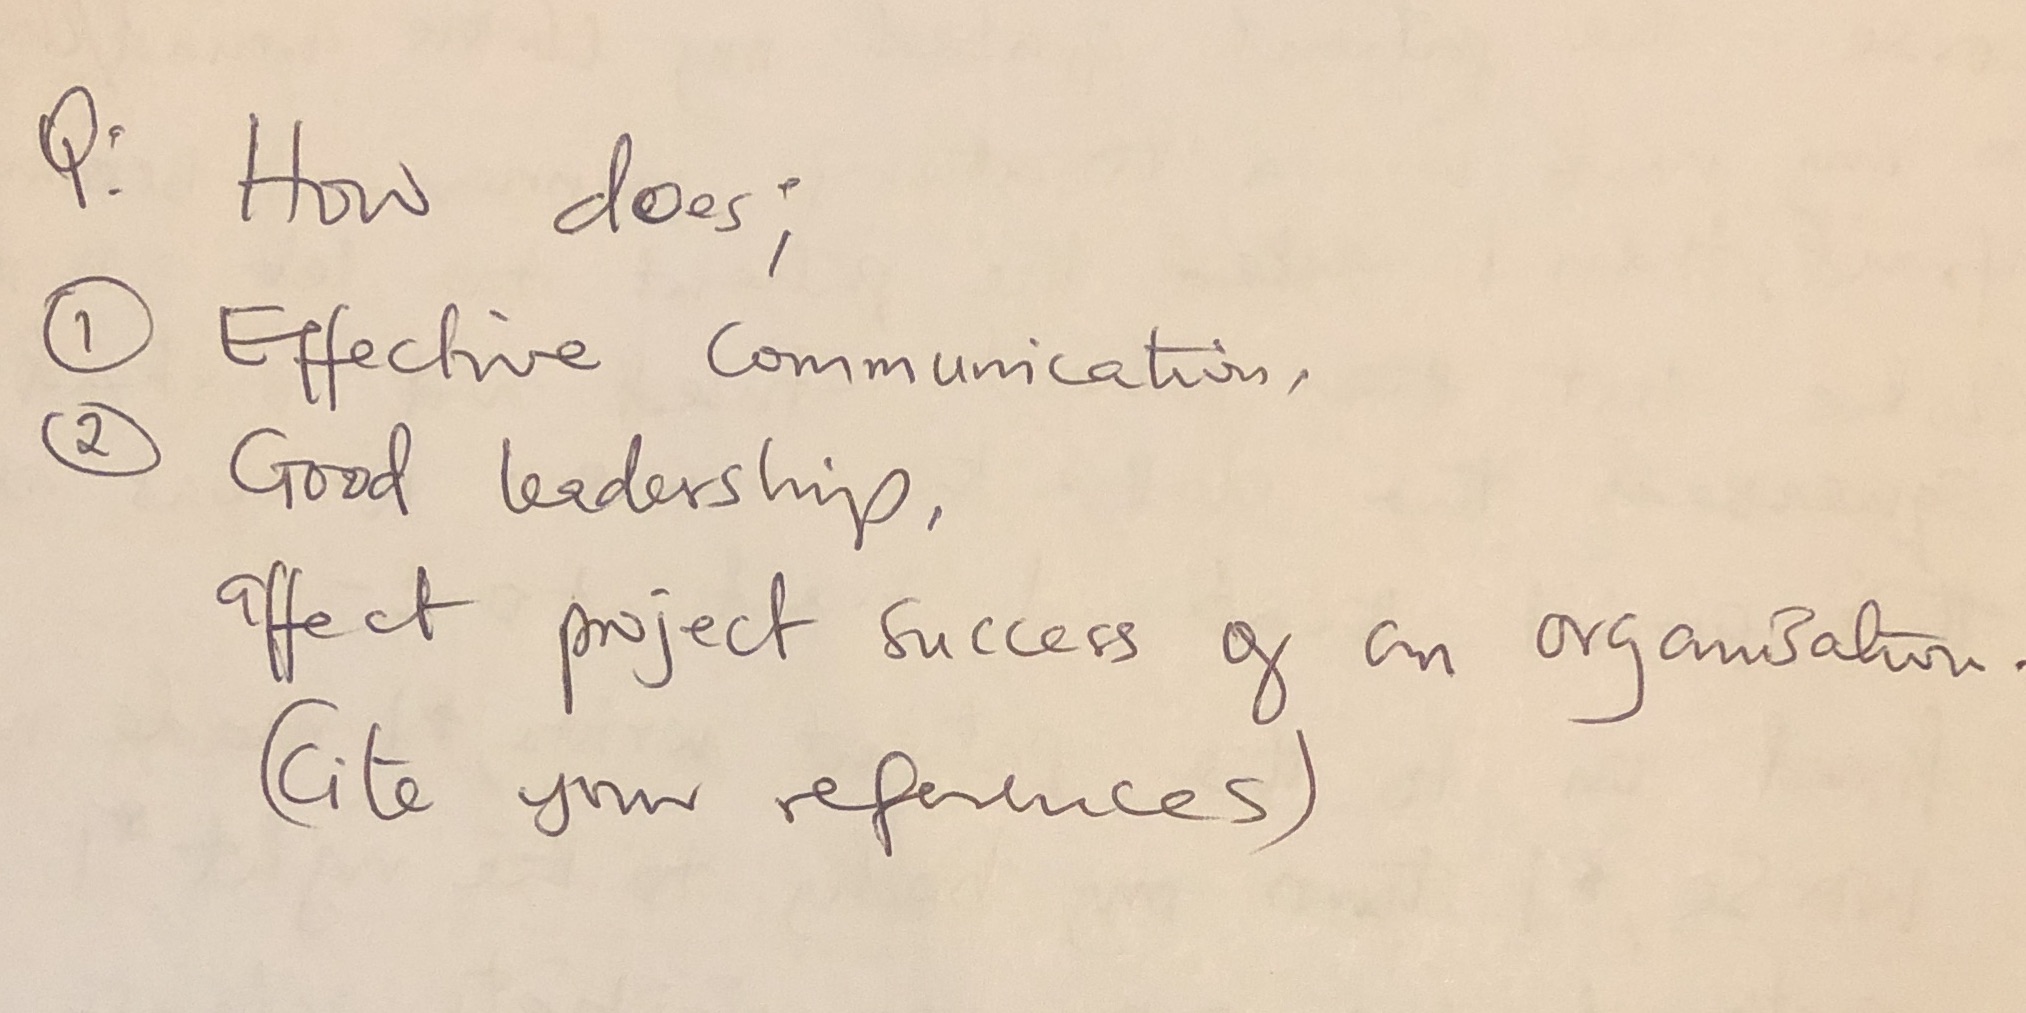 Q: How does;
① Effective communication,
② Good leadership,
affect project success of an organisation.
(Cite your references)